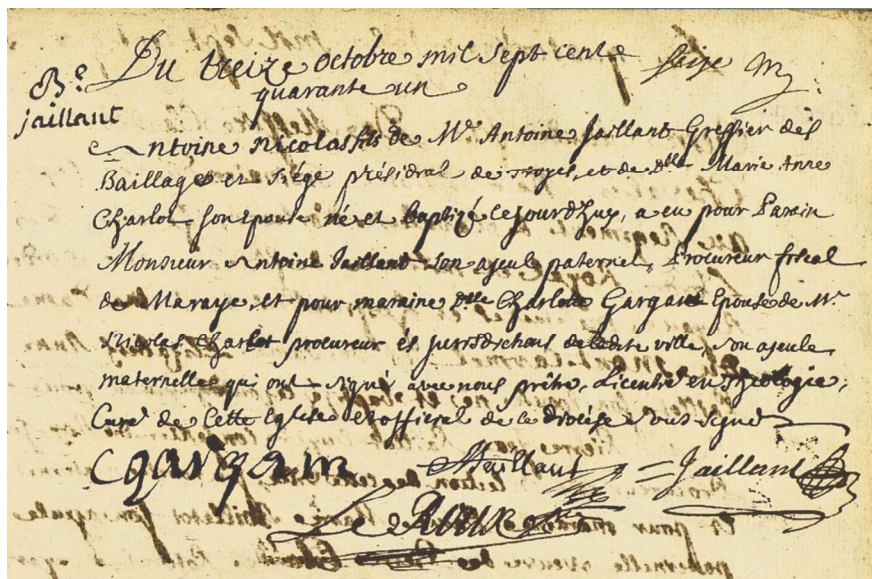 Du treize octobre mil sept cents
quarante un
seize
Be
jaillant
Antoine Nicolas fils de Mr Antoine Jaillant Greffier des
Baillage et siége présidial de Troyes, et de dlle Marie Anne
Charlot son Epouse né et baptizé cejourdhuy, a eu pour Parain
Monsieur Antoine Jaillant son ayeul paternel, Procureur fiscal
de Maraye, et pour maraine dlle Charlotte Gargam Epouse de Mr
Nicolas Charlot procureur és jurisdictions de ladite ville, son ayeule
maternelle qui ont signé avec nous prêtre, Licentié en Theologie,
Curé de Cette Eglise et official de ce diocèse sous signé
C gargam Jaillant Jaillant
Le Roux